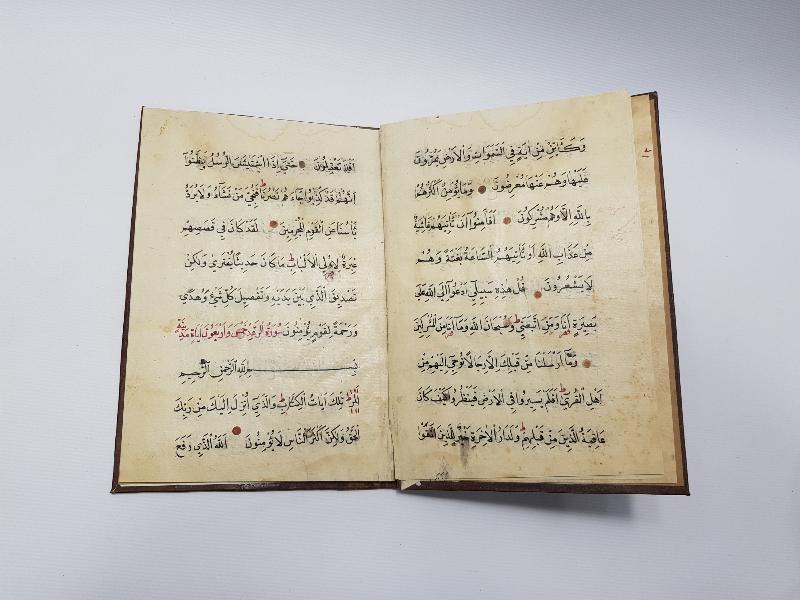 وَكَأَيِّنْ مِنْ اٰيَةٍ فِي السَّمٰوَاتِ وَالْاَرْضِ يَمُرُّونَ
عَلَيْهَا وَهُمْ عَنْهَا مُعْرِضُونَ وَمَا يُؤْمِنُ اَكْثَرُهُمْ
بِاللّٰهِ اِلَّا وَهُمْ مُشْرِكُونَ اَفَاَمِنُوا اَنْ تَأْتِيَهُمْ غَاشِيَةٌ
مِنْ عَذَابِ اللّٰهِ اَوْ تَأْتِيَهُمُ السَّاعَةُ بَغْتَةً وَهُمْ
لَا يَشْعُرُونَ قُلْ هٰذِهِ سَبِيلِي اَدْعُوا اِلَى اللّٰهِ عَلَى
بَصِيرَةٍ اَنَا وَمَنِ اتَّبَعَنِي وَسُبْحَانَ اللّٰهِ وَمَا اَنَا مِنَ الْمُشْرِكِينَ
وَمَا اَرْسَلْنَا مِنْ قَبْلِكَ اِلَّا رِجَالًا نُوحِي اِلَيْهِمْ مِنْ
اَهْلِ الْقُرٰى اَفَلَمْ يَسِيرُوا فِي الْاَرْضِ فَيَنْظُرُوا كَيْفَ كَانَ
عَاقِبَةُ الَّذِينَ مِنْ قَبْلِهِمْ وَلَدَارُ الْاٰخِرَةِ خَيْرٌ لِلَّذِينَ اتَّقَوْا
اَفَلَا تَعْقِلُونَ حَتّٰى اِذَا اسْتَيْئَسَ الرُّسُلُ وَظَنُّوا
اَنَّهُمْ قَدْ كُذِبُوا جَاءَهُمْ نَصْرُنَا فَنُجِّيَ مَنْ نَشَاءُ وَلَا يُرَدُّ
بَأْسُنَا عَنِ الْقَوْمِ الْمُجْرِمِينَ لَقَدْ كَانَ فِي قَصَصِهِمْ
عِبْرَةٌ لِاُولِي الْاَلْبَابِ مَا كَانَ حَدِيثًا يُفْتَرٰى وَلٰكِنْ
تَصْدِيقَ الَّذِي بَيْنَ يَدَيْهِ وَتَفْصِيلَ كُلِّ شَيْءٍ وَهُدًى
وَرَحْمَةً لِقَوْمٍ يُؤْمِنُونَ سُورَةُ الرَّعْدِ خَمْسٌ وَاَرْبَعُونَ اٰيَةً مَدَنِيَّةٌ
بِسْمِ اللّٰهِ الرَّحْمٰنِ الرَّحِيمِ
الٓمٓرٰ تِلْكَ اٰيَاتُ الْكِتَابِ وَالَّذِي اُنْزِلَ اِلَيْكَ مِنْ رَبِّكَ
الْحَقُّ وَلٰكِنَّ اَكْثَرَ النَّاسِ لَا يُؤْمِنُونَ اَللّٰهُ الَّذِي رَفَعَ